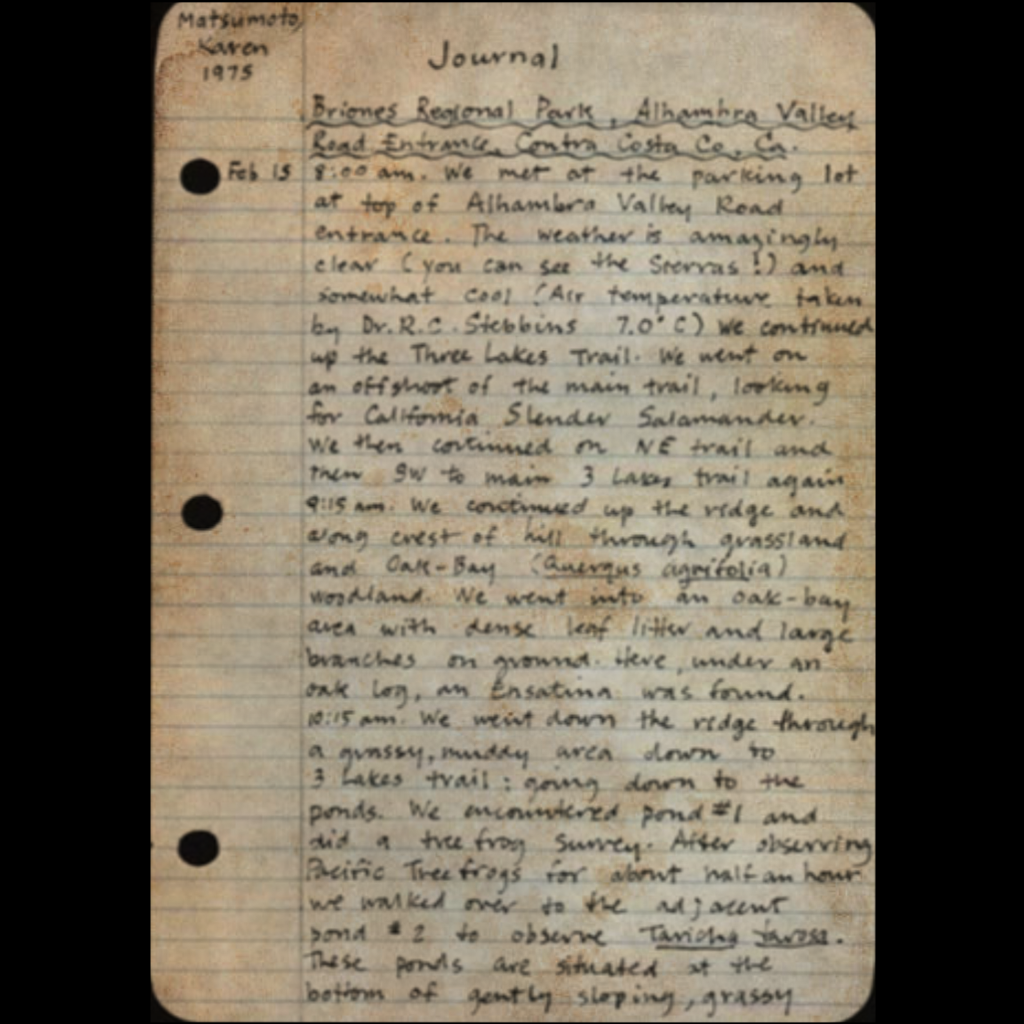 Matsumoto,
Karen
1975
Journal
Briones Regional Park, Alhambra Valley
Road Entrance, Contra Costa Co, Ca.
Feb 15 8:00 am. We met at the parking lot
at top of Alhambra Valley Road
entrance. The weather is amazingly
clear (you can see the Sierras!) and
somewhat cool (Air temperature taken
by Dr. R.C. Stebbins 7.0°C) We continued
up the Three Lakes Trail. We went on
an offshoot of the main trail, looking
for California Slender Salamander.
We then continued on NE trail and
then SW to main 3 Lakes trail again
9:15 am. We continued up the ridge and
along crest of hill through grassland
and Oak-Bay (Quercus agrifolia)
woodland. We went into an oak-bay
area with dense leaf litter and large
branches on ground. Here, under an
oak log, an Ensatina was found.
10:15 am. We went down the ridge through
a grassy, muddy area down to
3 Lakes trail: going down to the
ponds. We encountered pond #1 and
did a tree frog survey. After observing
Pacific Treefrogs for about half an hour
we walked over to the adjacent
pond #2 to observe Taricha torosa.
These ponds are situated at the
bottom of gently sloping, grassy